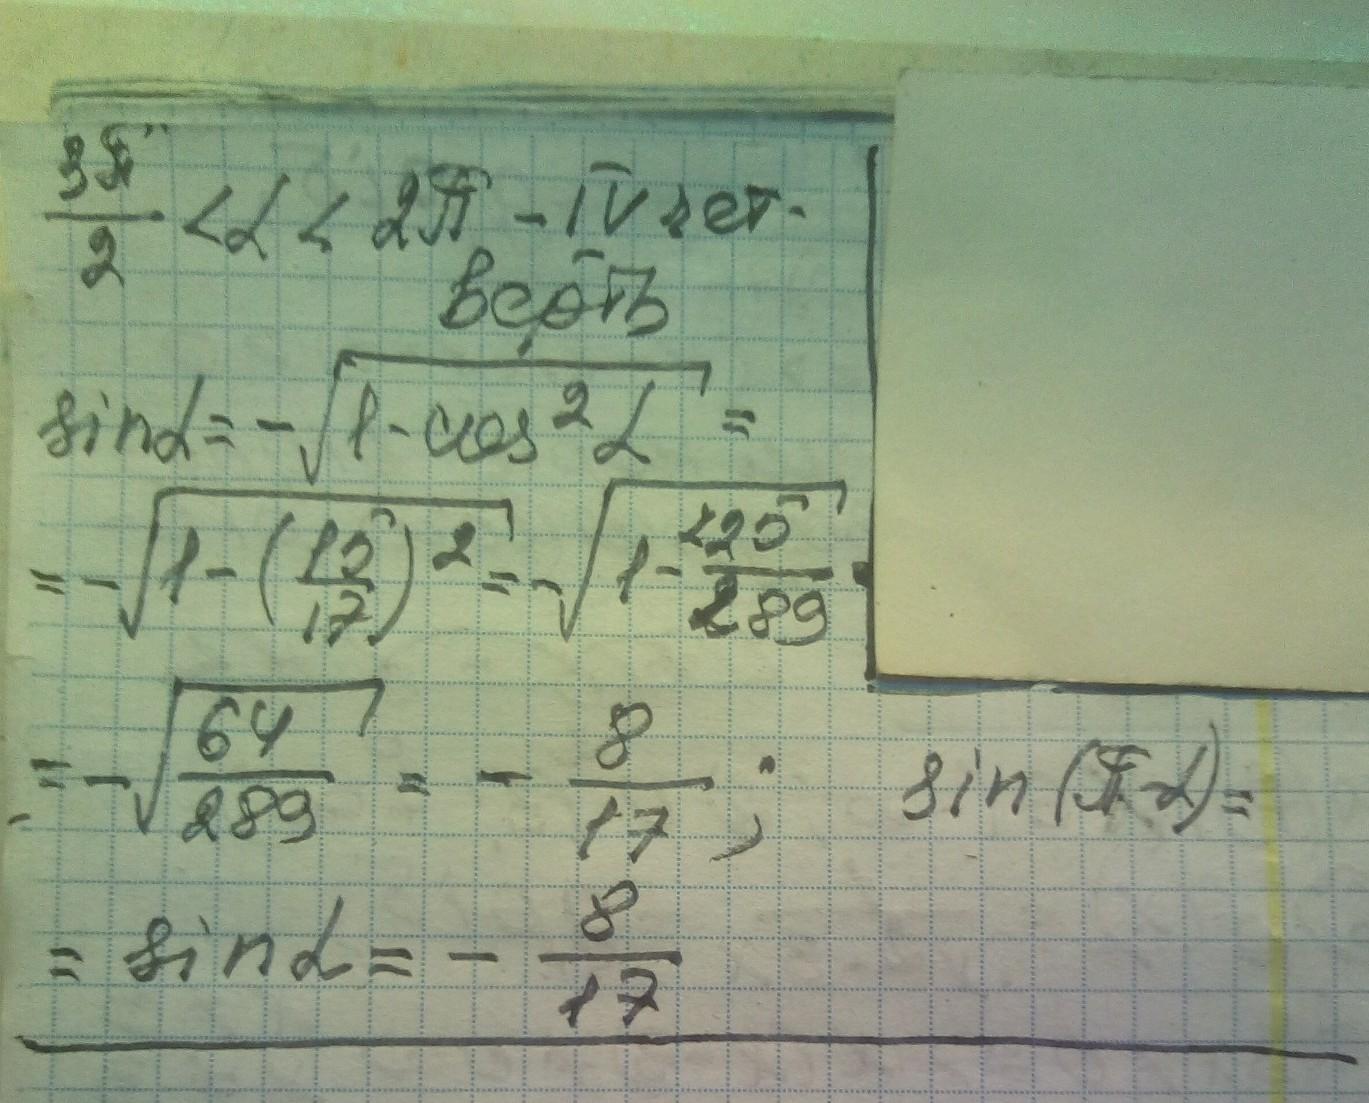 3π/2 < α < 2π - IV чет-
верть
sinα = -√(1-cos²α) =
= -√(1-(15/17)²) = -√(1-225/289) =
= -√(64/289) = -8/17; sin(π-α) =
= sinα = -8/17